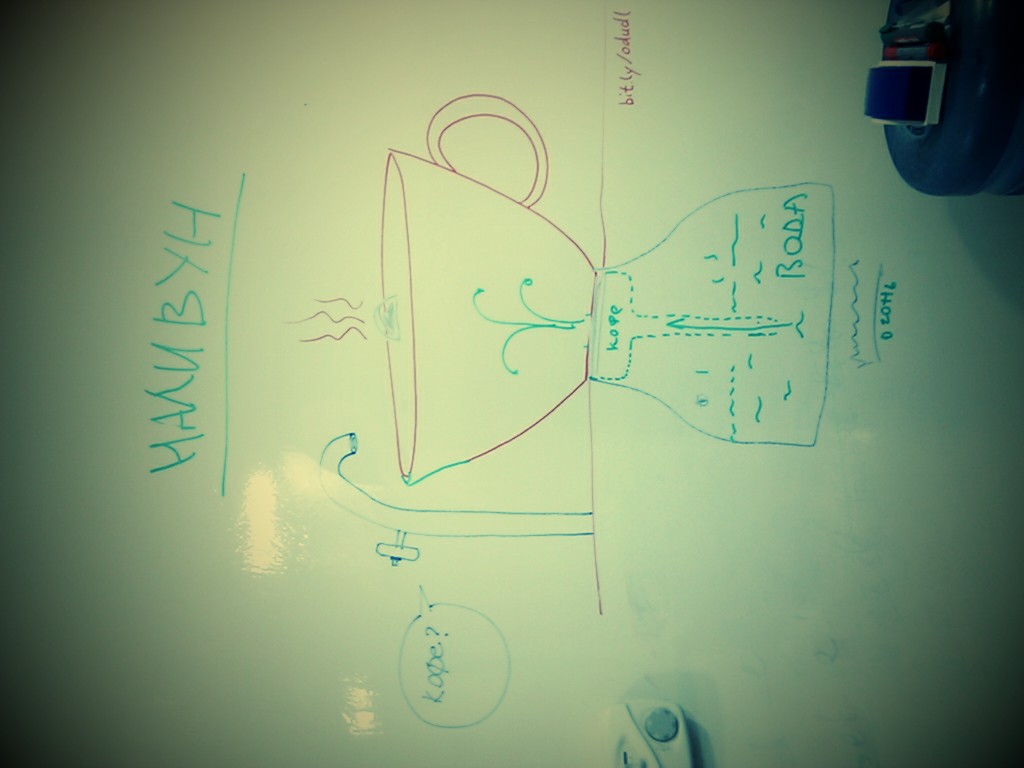 НАЛИВУН
Кофе?
кофе
bit.ly/odudl
ВОДА
огонь